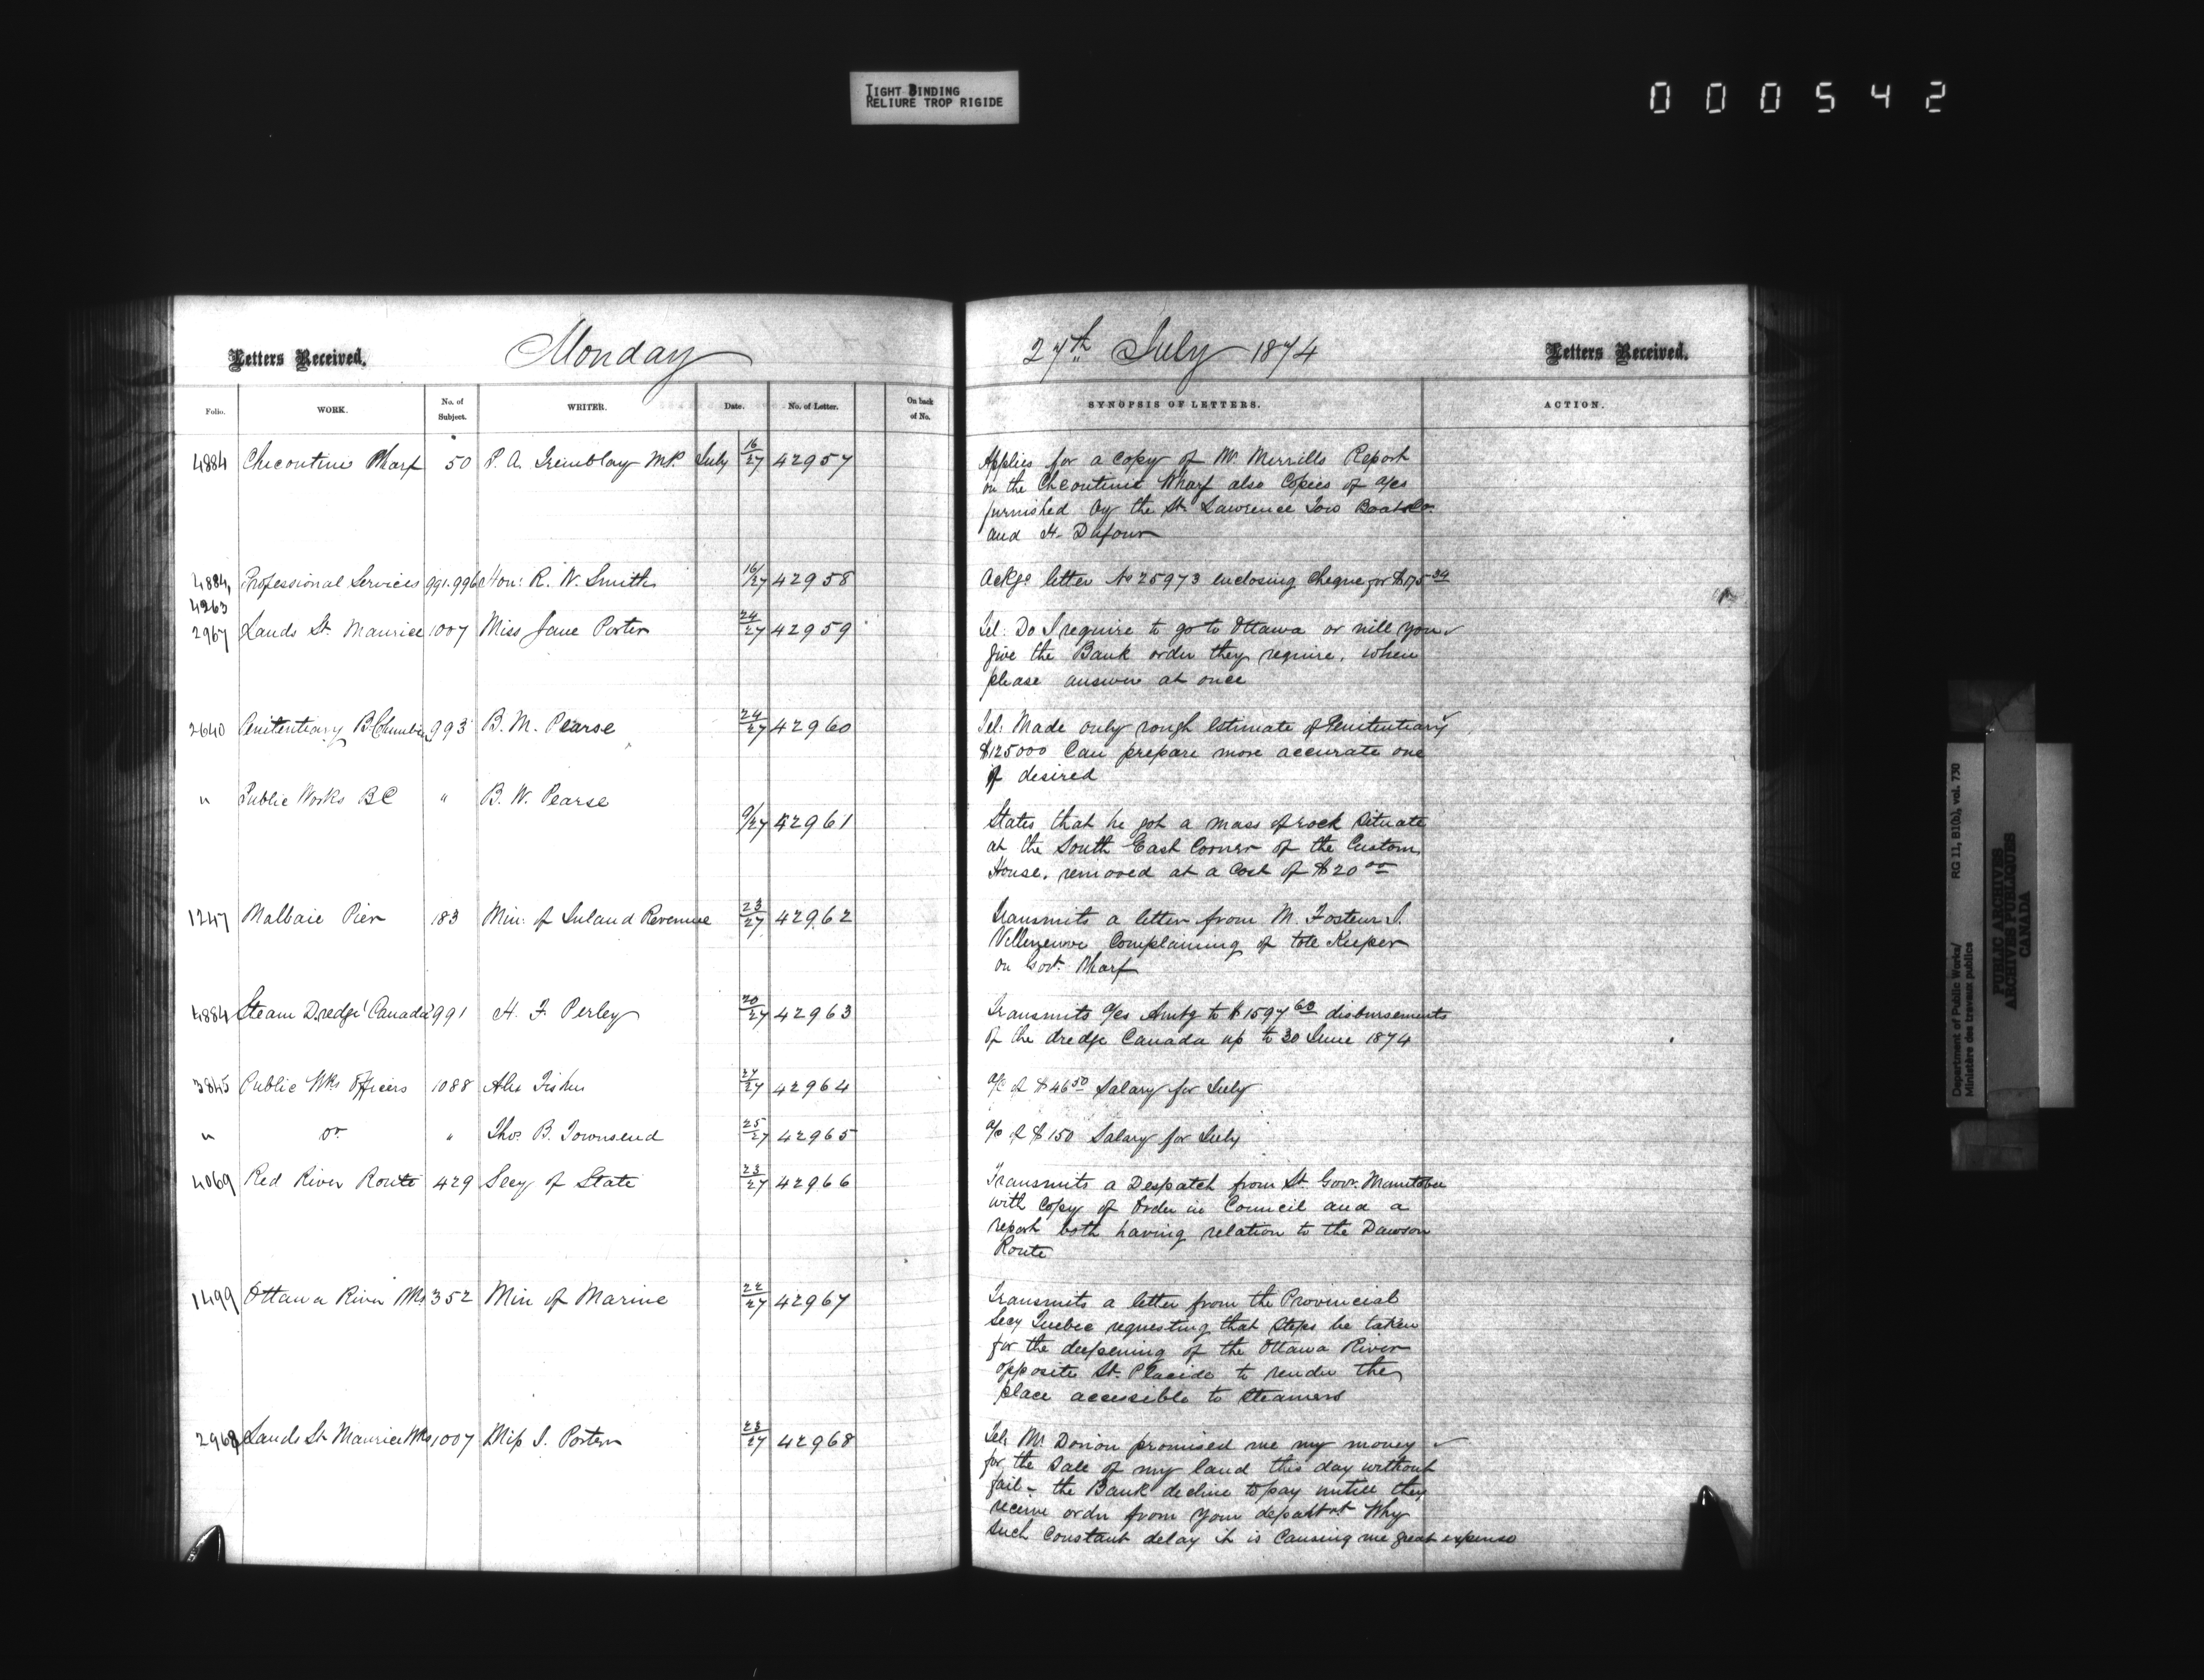 TIGHT BINDING
RELIURE TROP RIGIDE
000542
Letters Received. Monday 27th July 1874 Letters Received.
Folio. WORK. No. of Subject. WRITER. Date. No. of Letter. On back of No. SYNOPSIS OF LETTERS. ACTION.
4884 Chicoutimi Wharf 50 P. A. Tremblay M.P. July 16/27 42957 Applies for a copy of Mr. Merrills Report
on the Chicoutimi Wharf also Copies of a/cs
furnished by the St. Lawrence Tow Boat Co.
and H. Dufour
4884, 4263 Professional Services 991.996 Hon: R. W. Smith 16/27 42958 Ackge letter No 25973 enclosing Cheque for $175
2967 Lands St. Maurice 1007 Miss Jane Porter 24/27 42959 Tel: Do I require to go to Ottawa or will you
give the Bank order they require, when
please answer at once
2640 Penitentiary B. Columbia 993 B. W. Pearse 24/27 42960 Tel: Made only rough Estimate of Penitentiary
$125000 Can prepare more accurate one
if desired
" Public Works BC " B. W. Pearse 9/27 42961 States that he got a mass of rock situate
at the South East Corner of the Custom
House, removed at a Cost of $20 00
1247 Malbaie Pier 183 Min: of Inland Revenue 23/27 42962 Transmits a letter from M.
Complaining of tole Keeper
on Govt. Wharf
4884 Steam Dredge 'Canada' 991 H. F. Perley 20/27 42963 Transmits a/cs Amtg to $1597 63 disbursements
of the dredge Canada up to 30 June 1874
3845 Public Wks Officers 1088 Alex Fisher 27/27 42964 a/c of $46 50 Salary for July
" Do " Thos. B. Townsend 25/27 42965 a/c of $150 Salary for July
4069 Red River Route 429 Secy of State 23/27 42966 Transmits a Despatch from Lt. Govr. Manitoba
with Copy of Order in Council and a
report both having relation to the Dawson
Route
1499 Ottawa River Wks 352 Min of Marine 22/27 42967 Transmits a letter from the Provincial
Secy Quebec requesting that Steps be taken
for the deepening of the Ottawa River
opposite St. Placide to render the
place accessible to Steamers
2968 Lands St Maurice Wks 1007 Miss J. Porter 23/27 42968 Tel: Mr Dorion promised me my money
for the sale of my land this day without
fail - the Bank decline to pay untill they
receive order from your departmt Why
such Constant delay it is Causing me great expense
Department of Public Works/ RG 11, B1(b), vol. 730
Ministère des travaux publics
PUBLIC ARCHIVES
ARCHIVES PUBLIQUES
CANADA